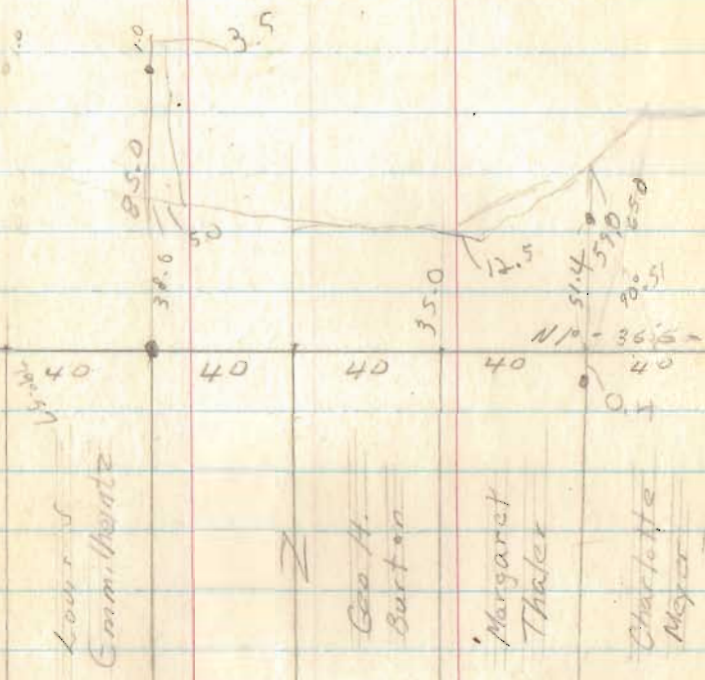 1.0
1.0
3.5
85.0
50
38.6
35.0
12.5
51.4
59.0
65.0
90°51
40
40
40
40
40
Louis
Geo H.
Burton
Margaret
Thaler
Charlotte
Meyer